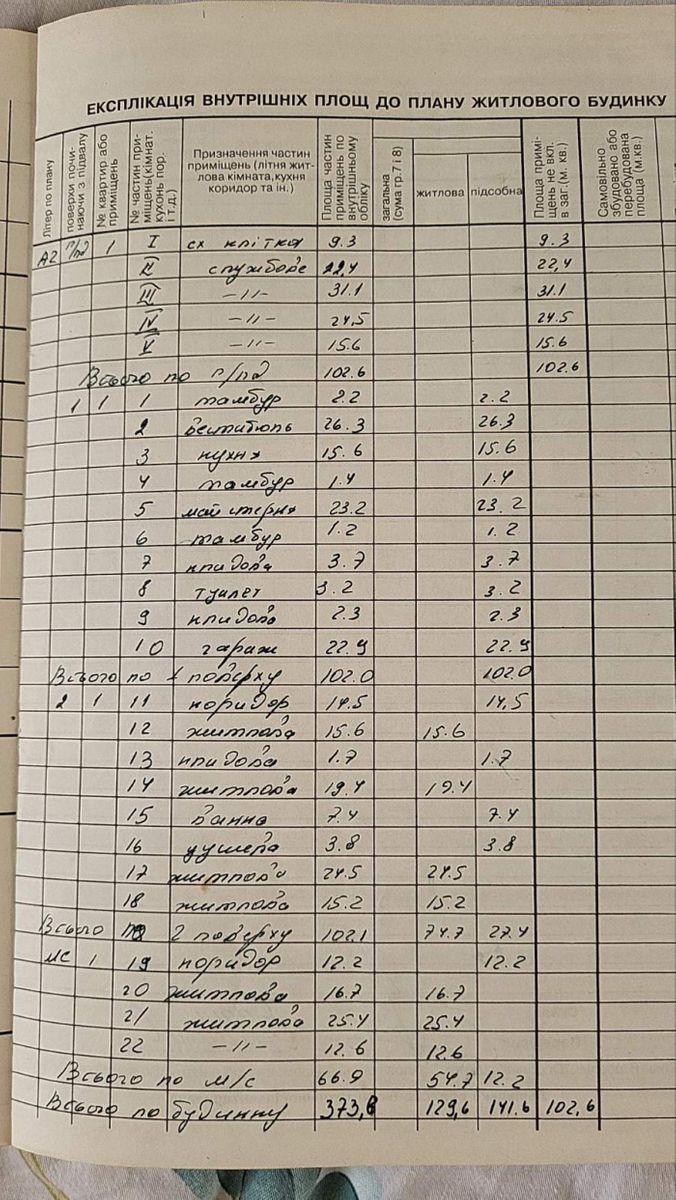 ЕКСПЛІКАЦІЯ ВНУТРІШНІХ ПЛОЩ ДО ПЛАНУ ЖИТЛОВОГО БУДИНКУ
Літер по плану
поверхи почи-
наючи з підвалу
№ квартир або
приміщень
№ частин при-
міщень(кімнат.
кухонь пор.
і т.д.)
Призначення частин
приміщень (літня жит-
лова кімната,кухня
коридор та ін.)
Площа частин
приміщень по
внутрішньому
обліку
загальна
(сума гр.7 і 8)
житлова
підсобна
Площа примі-
щень не вкл.
в заг.(м. кв.)
Самовільно
збудовано або
перебудована
площа (м.кв.)
А2 п/пд 1 I сх клітка 9.3 9.3
II службове 22,4 22,4
III —//— 31.1 31.1
IV —//— 24,5 24.5
V —//— 15.6 15.6
Всього по п/пд 102.6 102.6
1 1 1 тамбур 2.2 2.2
2 вестибюль 26.3 26.3
3 кухня 15.6 15.6
4 тамбур 1.4 1.4
5 майстерня 23.2 23.2
6 тамбур 1.2 1.2
7 кладова 3.7 3.7
8 туалет 3.2 3.2
9 кладова 2.3 2.3
10 гараж 22.9 22.9
Всього по 1 поверху 102.0 102.0
2 1 11 коридор 14.5 14,5
12 житлова 15.6 15.6
13 кладова 1.7 1.7
14 житлова 19.4 19.4
15 ванна 7.4 7.4
16 душева 3.8 3.8
17 житлова 24.5 24.5
18 житлова 15.2 15.2
Всього по 2 поверху 102,1 74.7 27.4
МС 1 19 коридор 12.2 12.2
20 житлова 16.7 16.7
21 житлова 25.4 25.4
22 —//— 12.6 12.6
Всього по м/с 66.9 54.7 12.2
Всього по будинку 373,6 129,6 141.6 102,6